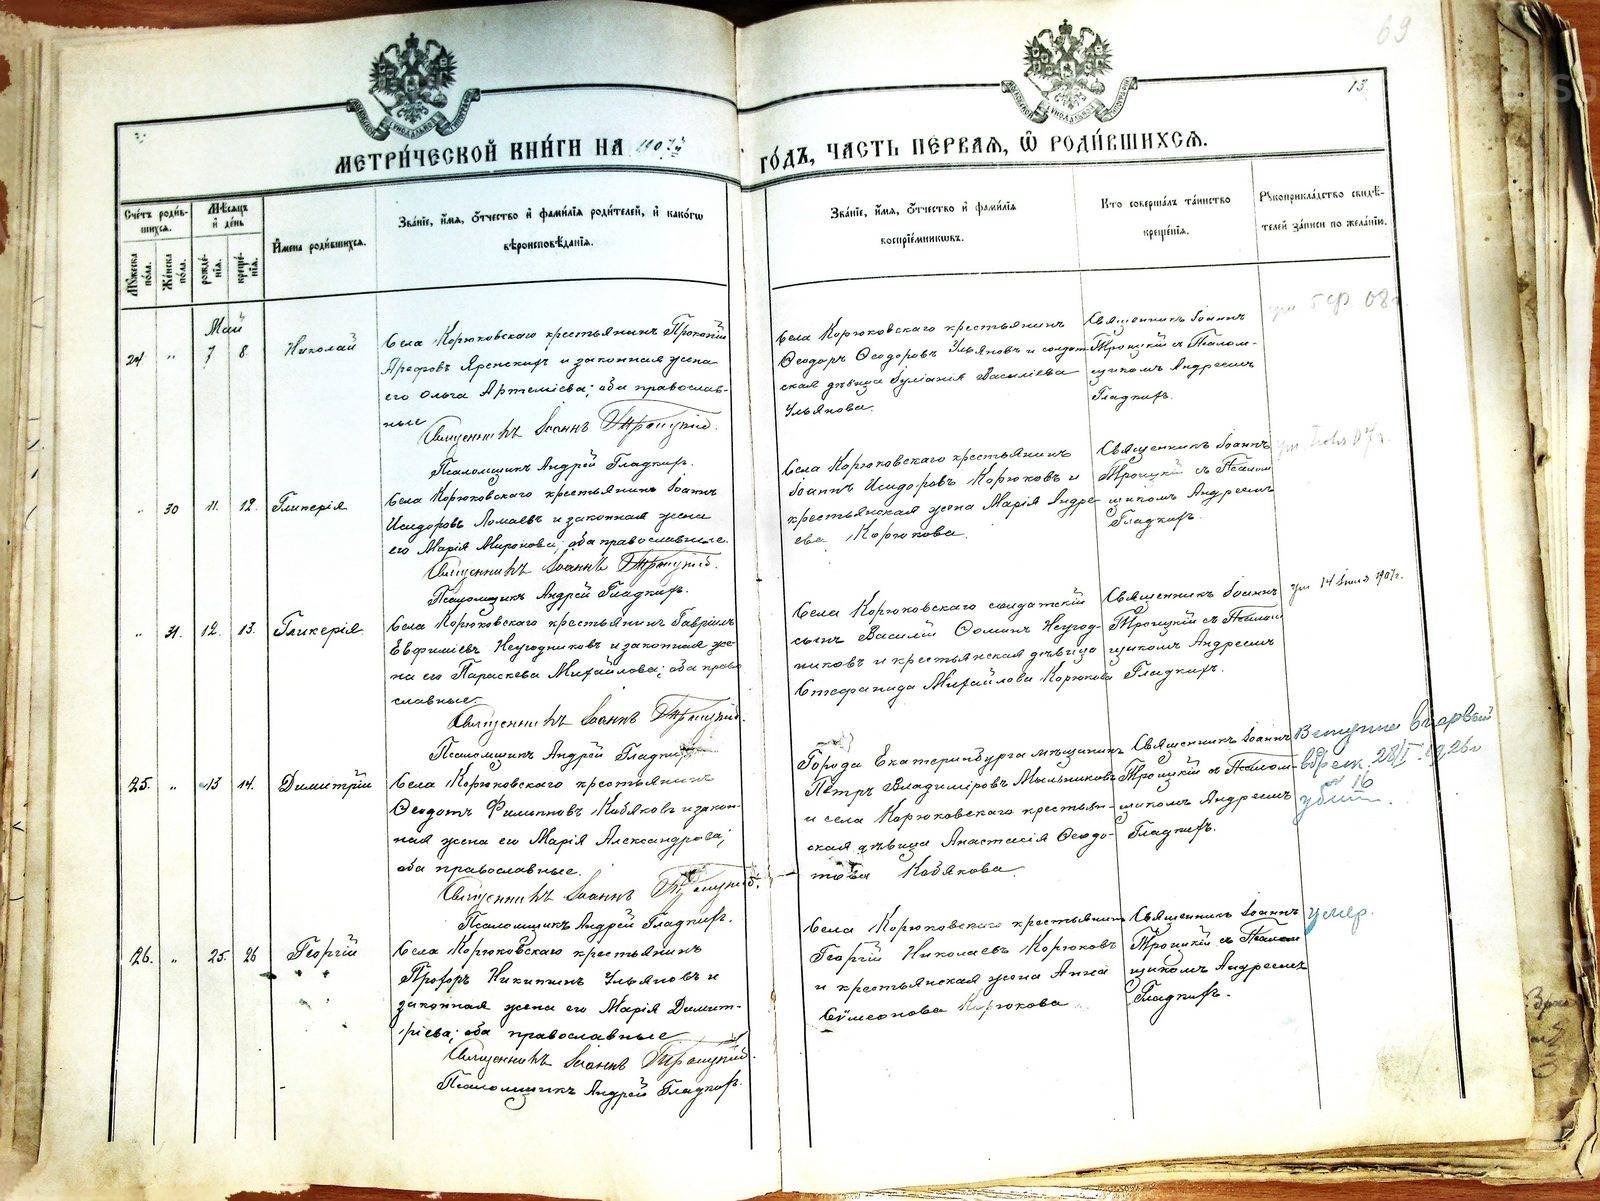 69
13.
МЕТРИ́ЧЕСКОЙ КНИ́ГИ НА 1907й ГО́ДЪ, ЧАСТЬ ПЕ́РВАЯ, Ѿ РОДИ́ВШИХСЯ.
Сче́тъ роди́в-
шихся.
Мꙋ́жеска по́ла.
Же́нска по́ла.
Мѣ́сяцъ и де́нь
рожде́-
нїя.
креще́-
нїя.
И́мена роди́вшихся.
Зва́нїе, и́мя, ѻ́тчество и фами́лїя роди́телей, и како́гѡ
вѣроисповѣ́данїя.
Зва́нїе, и́мя, ѻ́тчество и фами́лїя
воспрїе́мниковъ.
Кто соверша́лъ та́инство
креще́нїя.
Рꙋкоприкла́дство свидѣ́-
телей за́писи по жела́нїю.
Май
24 " 7 8 Николай
Села Корюковскаго крестьянинъ Прокопій
Арефовъ Яренскихъ и законная жена
его Ольга Артеміева; оба православ-
ные
Священникъ Іоаннъ Троицкій.
Псаломщикъ Андрей Гладкихъ.
Села Корюковскаго крестьянинъ
Ѳеодоръ Ѳеодоровъ Ульяновъ и солдат-
ская дѣвица Іуліанія Василіева
Ульянова.
Священникъ Іоаннъ
Троицкій съ Псалом-
щикомъ Андреемъ
Гладкихъ.
ум 08 г
" 30 11. 12. Гликерія
Села Корюковскаго крестьянинъ Іоаннъ
Исидоровъ Ломаевъ и законная жена
его Марія Миронова; оба православные.
Священникъ Іоаннъ Троицкій.
Псаломщикъ Андрей Гладкихъ.
Села Корюковскаго крестьянинъ
Іоаннъ Исидоровъ Корюковъ и
крестьянская жена Марія Андре-
ева Корюкова.
Священникъ Іоаннъ
Троицкій съ Псалом
щикомъ Андреемъ
Гладкихъ.
ум 07 г.
" 31. 12. 13. Гликерія
Села Корюковскаго крестьянинъ Гавріилъ
Евфиміевъ Неугодниковъ и законная же-
на его Параскева Михайлова; оба право
славные
Священникъ Іоаннъ Троицкій.
Псаломщикъ Андрей Гладкихъ
Села Корюковскаго солдатскій
сынъ Василій Ѳоминъ Неугод-
никовъ и крестьянская дѣвица
Стефанида Михайлова Корюкова
Священникъ Іоаннъ
Троицкій съ Псалом
щикомъ Андреемъ
Гладкихъ.
ум 14 1907 г.
25. " 13 14. Димитрій
Села Корюковскаго крестьянинъ
Ѳеодотъ Филипповъ Кобяковъ и закон-
ная жена его Марія Александрова;
оба православные.
Священникъ Іоаннъ Троицкій.
Псаломщикъ Андрей Гладкихъ.
Города Екатеринбурга мѣщанинъ
Петръ Владиміровъ Мыльниковъ
и села Корюковскаго крестьян-
ская дѣвица Анастасія Ѳеодо-
това Кобякова.
Священникъ Іоаннъ
Троицкій съ Псалом-
щикомъ Андреемъ
Гладкихъ.
Вступил в первый
брак 28/I 1926 г
№ 16
26. " 25. 26 Георгій
Села Корюковскаго крестьянинъ
Прохоръ Никитинъ Ульяновъ и
законная жена его Марія Димит-
ріева; оба православные
Священникъ Іоаннъ Троицкій.
Псаломщикъ Андрей Гладкихъ.
Села Корюковскаго крестьянинъ
Георгій Николаевъ Корюковъ
и крестьянская жена Анна
Сѵмеонова Корюкова
Священникъ Іоаннъ
Троицкій съ Псалом
щикомъ Андреемъ
Гладкихъ.
умер.